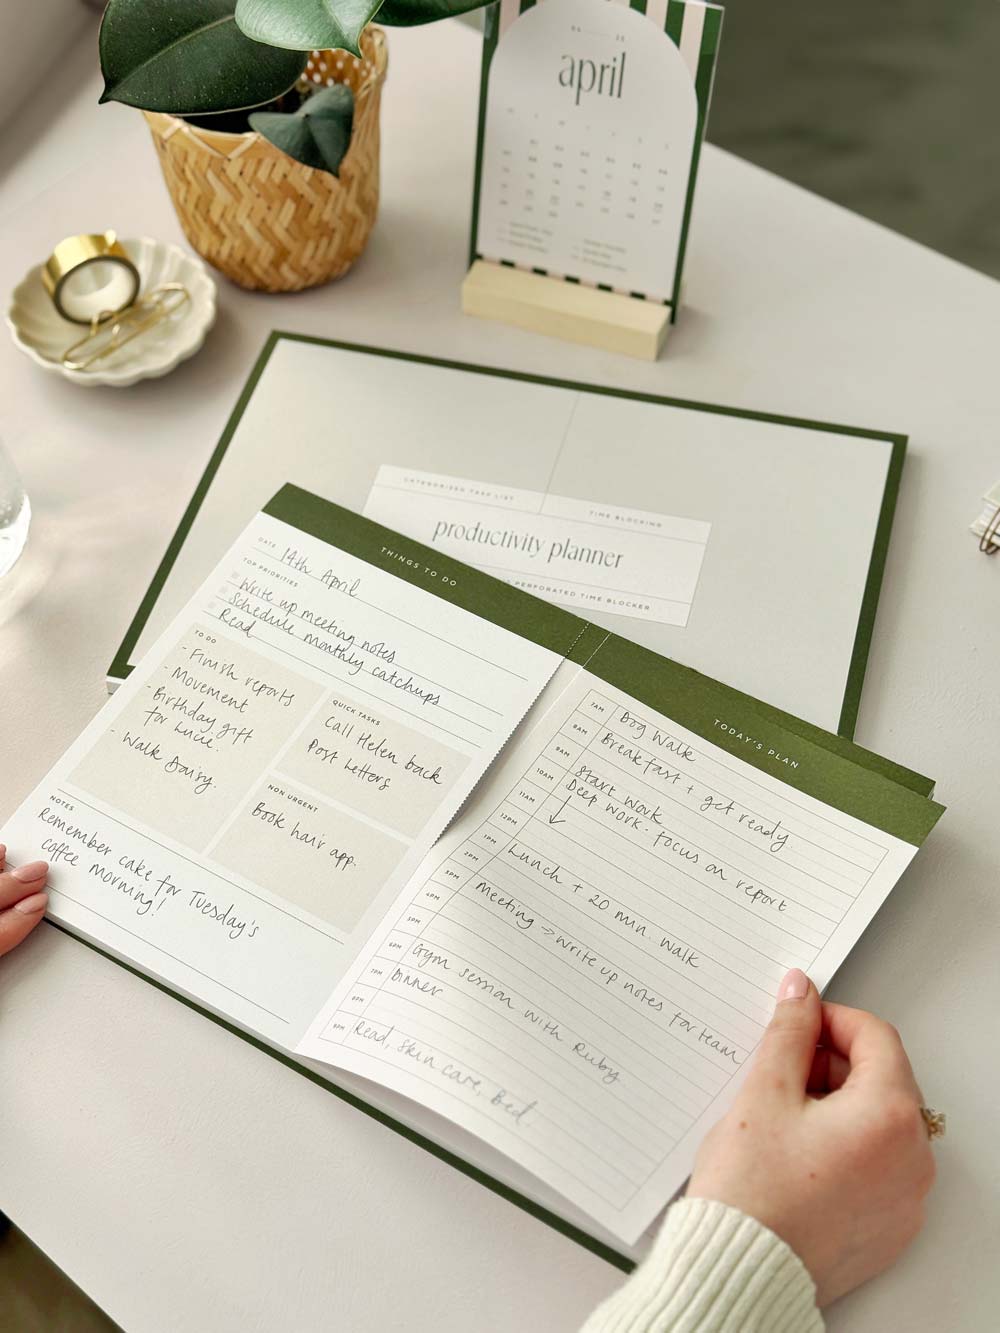 april
CATEGORISED TASK LIST
TIME BLOCKING
productivity planner
PERFORATED TIME BLOCKER
THINGS TO DO
DATE 14th April
TOP PRIORITIES
Write up meeting notes
Schedule monthly catchups
Read
TO DO
- Finish reports
- Movement
- Birthday gift
for Lucie.
- Walk Daisy.
QUICK TASKS
Call Helen back
Post letters
NON URGENT
Book hair app.
NOTES
Remember cake for Tuesday's
coffee morning!
TODAY'S PLAN
7AM Dog Walk
8AM Breakfast + get ready.
9AM Start work
10AM Deep work. focus on report
11AM ↓
12PM
1PM Lunch + 20 min. walk
2PM
3PM Meeting → write up notes for team
4PM
5PM
6PM Gym session with Ruby.
7PM Dinner
8PM
9PM Read, skin care, Bed!